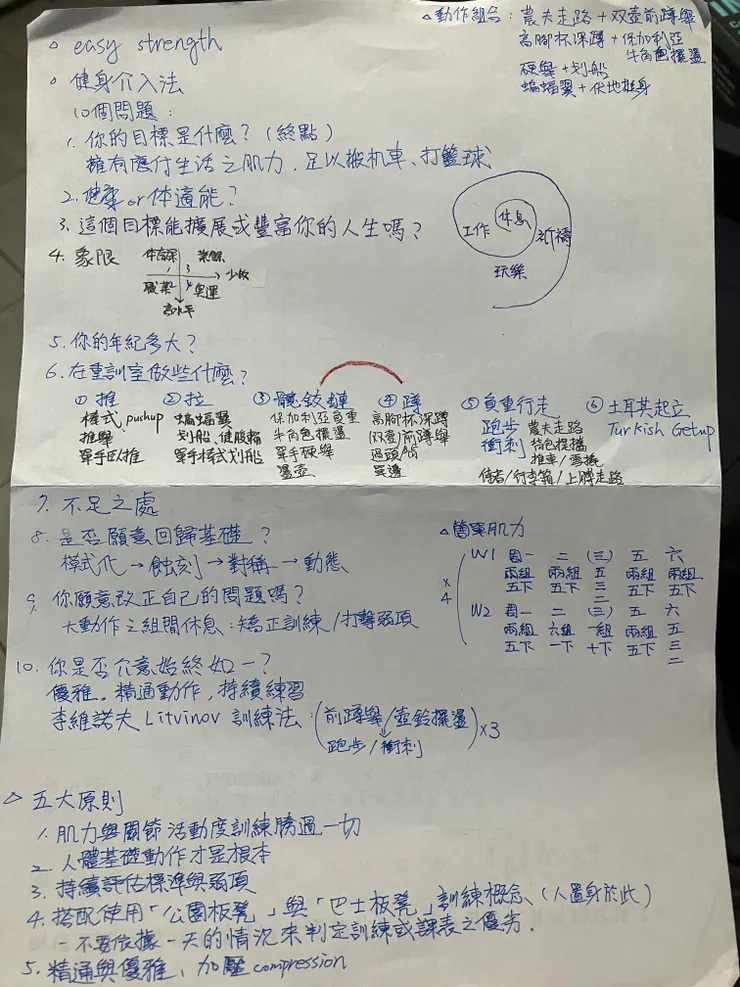 △動作組合：農夫走路+双壺前蹲舉
高腳杯深蹲+保加利亞牛角包擺盪
硬舉+划船
蝙蝠翼+伏地挺身
。easy strength
。健身介入法
10個問題：
1. 你的目標是什麼？(終點)
擁有應付生活之肌力，足以搬机車、打籃球
2. 健康or体適能？
3. 這個目標能擴展或豐富你的人生嗎？
休息
工作
祈禱
玩樂
4. 象限
体育課
1
3
少数
職業
2
4
奧運
高水平
5. 你的年紀多大？
6. 在重訓室做些什麼？
① 推
棒式pushup
推舉
單手臥推
② 拉
蝙蝠翼
划船、健腹輪
單手棒式划船
③ 髖鉸鏈
保加利亞負重
牛角包擺盪
單手硬舉
盪壺
④ 蹲
高脚杯深蹲
(双壺)前蹲舉
過頭
單邊
⑤ 負重行走
跑步
農夫走路
衝刺
推車/雪橇
侍者/行李箱/上膊走路
⑥ 土耳其起立
Turkish Getup
7. 不足之處
8. 是否願意回歸基礎？
模式化→蝕刻→對稱→動態
9. 你願意改正自己的問題嗎？
大動作之組間休息：矯正訓練/打擊弱項
10. 你是否介意始終如一？
優雅。精通動作，持續練習
李維諾夫Litvinov訓練法：(前蹲舉/壺鈴擺盪
跑步/衝刺)×3
△簡單肌力
×4
W1 週一 二 (三) 五 六
兩組 兩組 五 兩組 兩組
五下 五下 三 五下 五下
二
W2 週一 二 (三) 五 六
兩組 六組 一組 兩組 五
五下 一下 十下 五下 三
二
△ 五大原則
1. 肌力與關節活動度訓練勝過一切
2. 人體基礎動作才是根本
3. 持續評估標準與弱項
4. 搭配使用「公園板凳」與「巴士板凳」訓練概念、(人置身於此)
－不要依據一天的情況來判定訓練或課表之優劣.
5. 精通與優雅、加壓compression